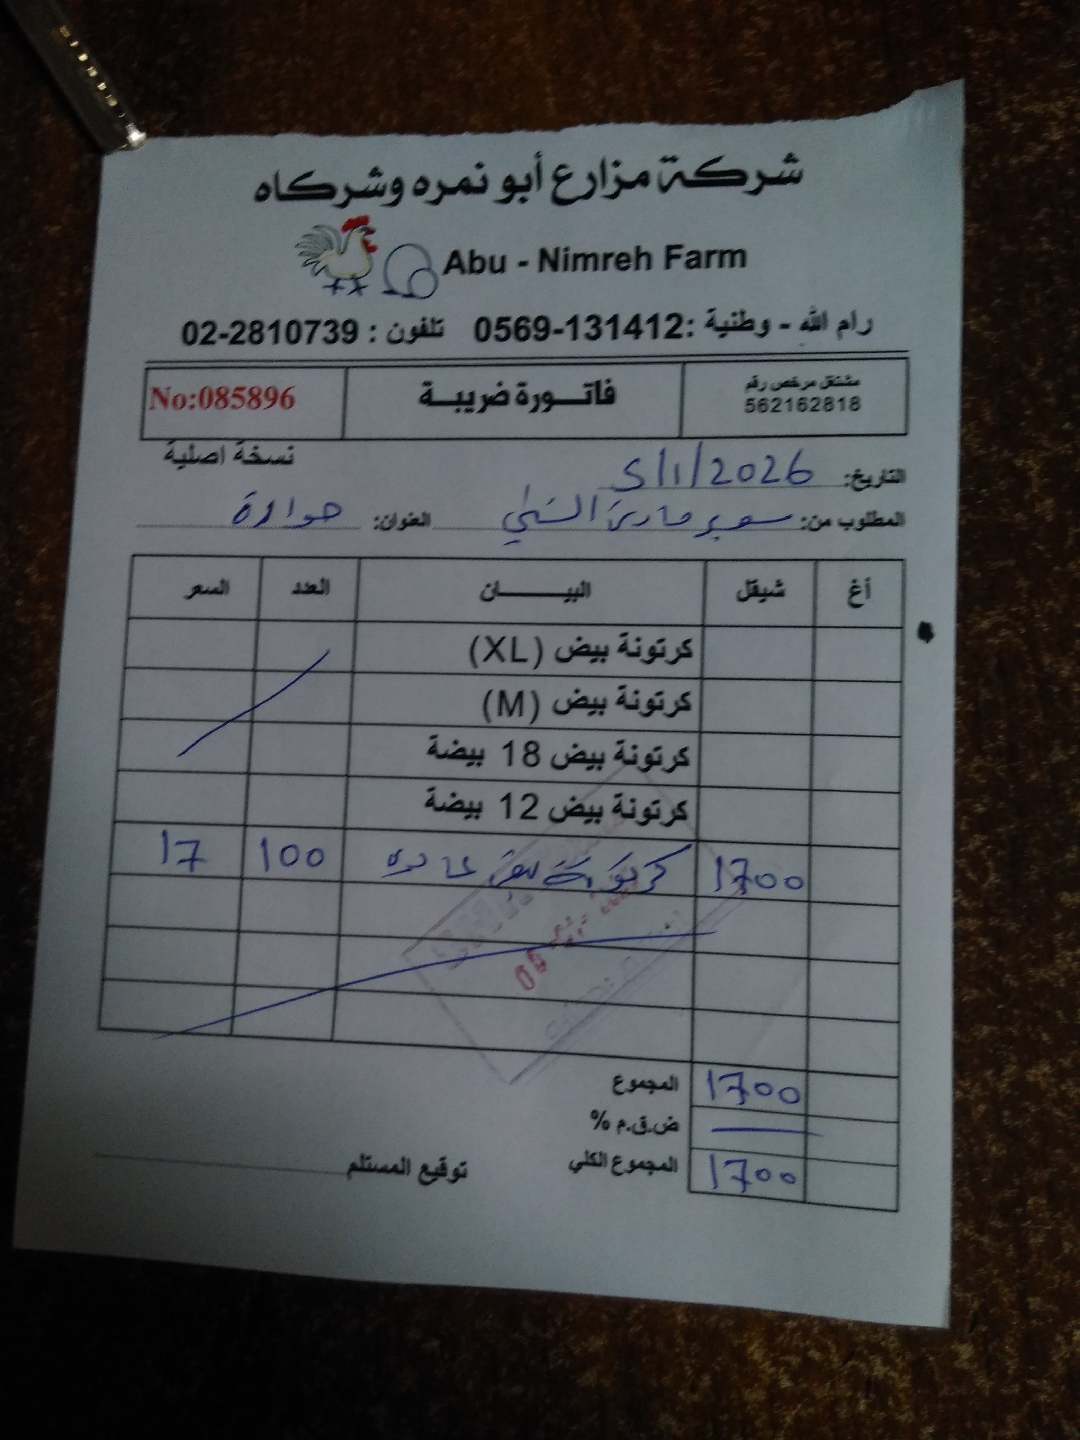 شركة مزارع أبو نمره وشركاه
Abu - Nimreh Farm
رام الله - وطنية : 0569-131412 تلفون : 02-2810739
مشتغل مرخص رقم
562162818
فاتورة ضريبة
No:085896
نسخة اصلية
التاريخ: 5/1/2026
المطلوب من: سوبر ماركت العنوان: حوارة
أغ شيقل البيـــــــان العدد السعر
كرتونة بيض (XL)
كرتونة بيض (M)
كرتونة بيض 18 بيضة
كرتونة بيض 12 بيضة
1700 كرتونة بيض 100 17
المجموع 1700
ض.ق.م %
المجموع الكلي 1700
توقيع المستلم